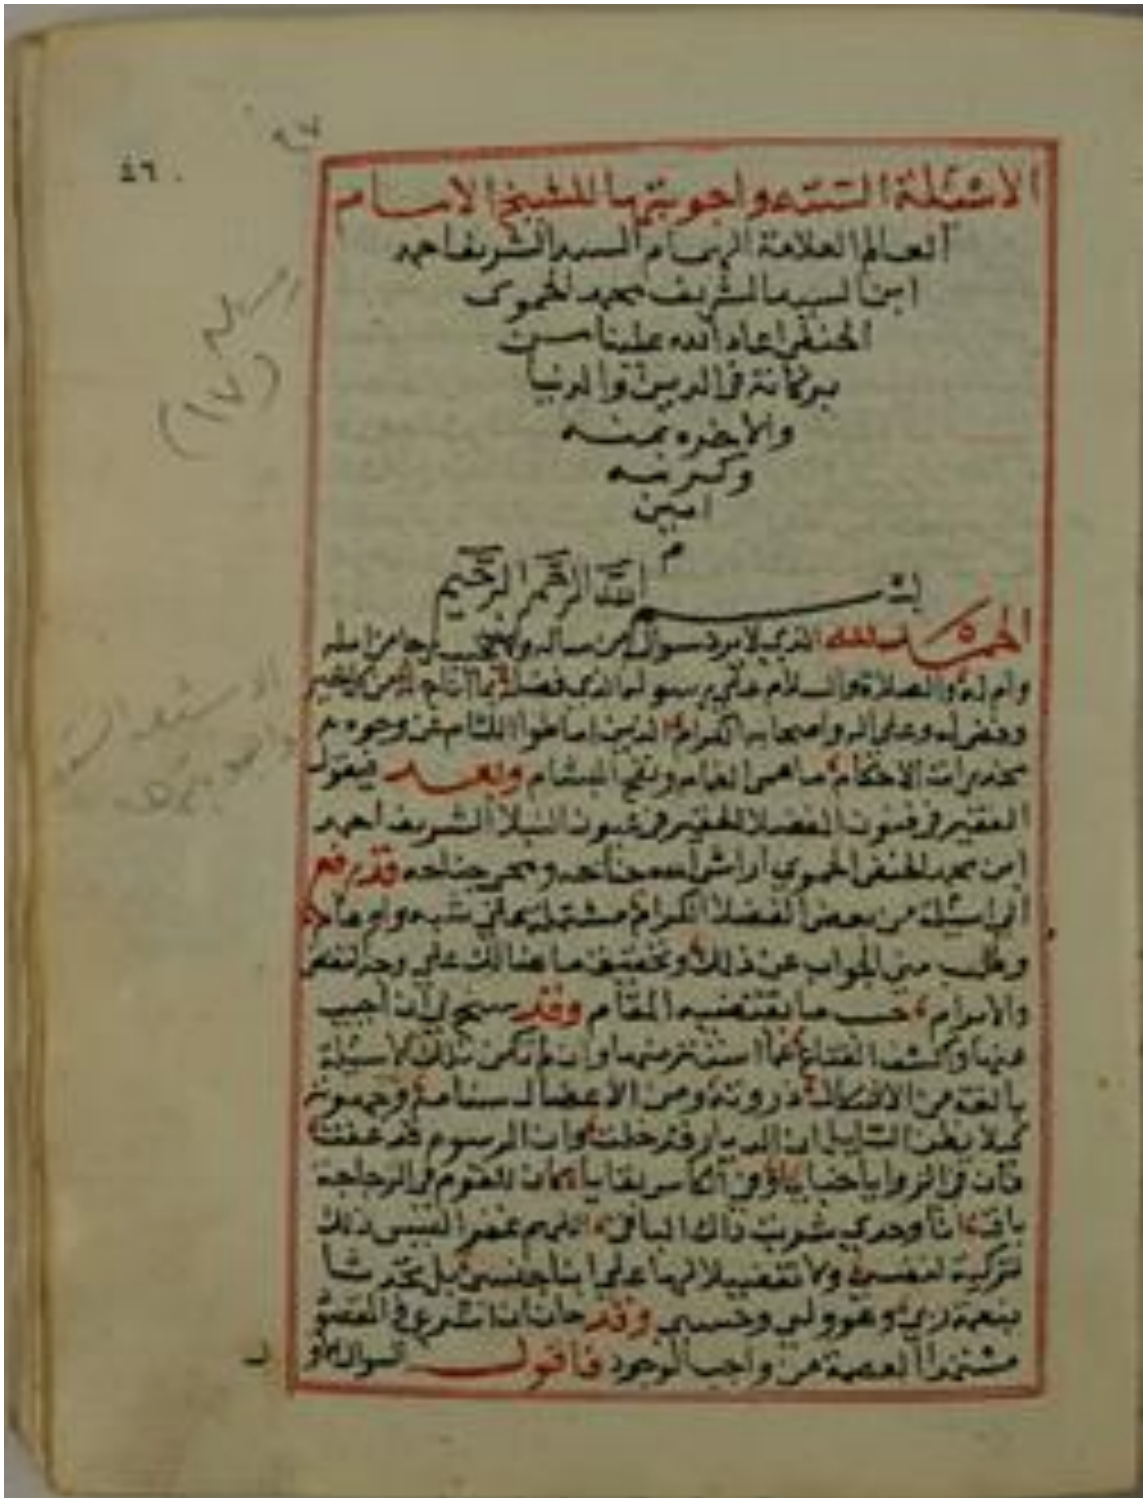 ٩٧
٤٦٠
الاسئلة الستة واجوبتها للشيخ الامام
العالم العلامة الهمام السيد الشريف احمد
ابن السيد الشريف محمد الحموي
الحنفي اعاد الله علينا من
بركاته في الدين والدنيا
والاخره بمنه
وكرمه
امين
م
رسالة
(١٧)
بسم الله الرحمن الرحيم
الحمد لله الذي لا يرد سوال من ساله ولا يخيب رجا من امله
وام له والصلاة والسلام علي رسوله الذي فصل
وعلي اله واصحابه الكرام الذين اماطوا اللثام عن وجوه
مخدرات الاحكام ما همي الغمام ونفح البشام وبعد فيقول
الفقير في فنون الفضلا الحقير في عيون النبلا الشريف احمد
ابن محمد الحنفي الحموي اراش الله جناحه وبحر جناحه قد رفع
الي اسئلة من بعض الفضلا الكرام مشتملة علي شبه واوهام
وطلب مني الجواب عن ذلك وتحقيق ما هنالك علي وجه النقض
والابرام حسب ما يقتضيه المقام وقد سنح لي ان اجيب
عنها واكشف القناع عما استتر منها وان لم تكن تلك الاسئلة
بالغة من الاشكال ذروته ومن الاعضال سنامه وصهوته
كيلا يظن السايل ان الديار قد خلت وان الرسوم قد عفت
فان في الزوايا خبايا وفي الكاس بقايا كان للقوم في الزجاجة
باق انا وحدي شربت ذاك الباقي اللهم غفرا ليس ذلك
تزكية لنفسي ولا تفضيلا لها علي ابنا جنسي بل تحدثا
بنعمة ربي وهو ولي وحسبي وقد حان ان اشرع في المقصو
مستمدا العصمة من واجب الوجود فاقول السوال الاو
ل
الاسئلة الستة
واجوبتها